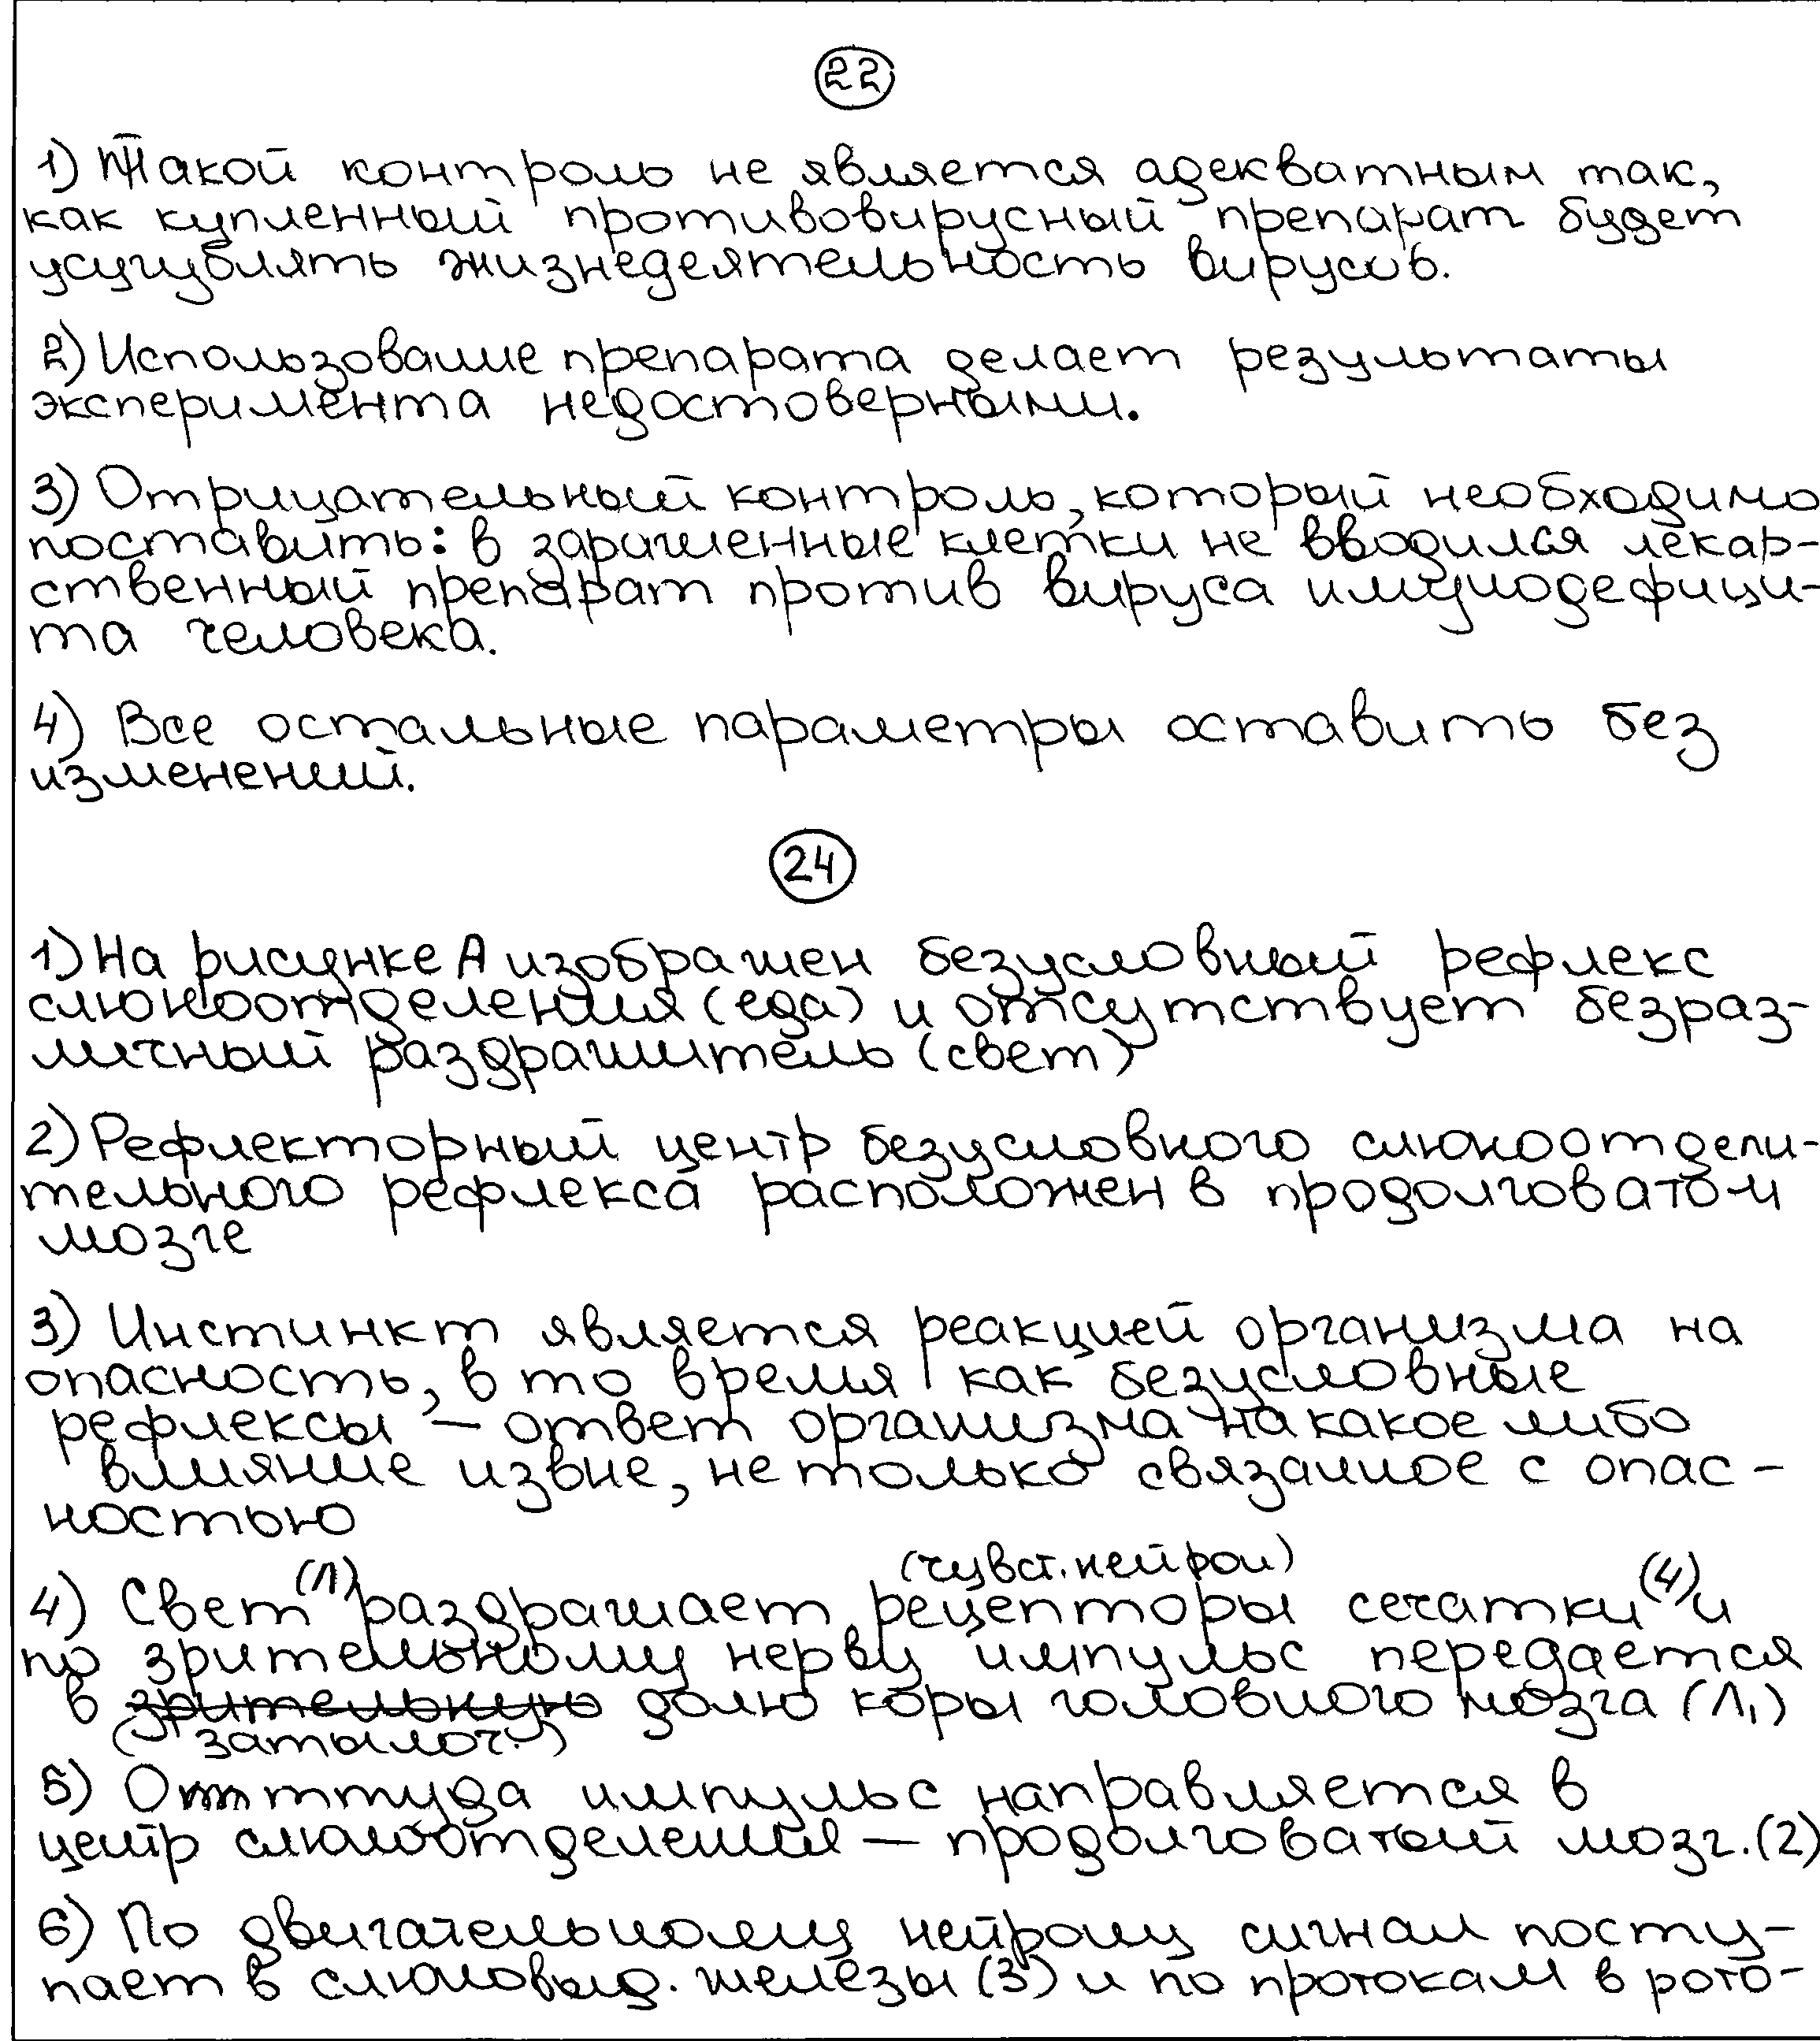 22
1) Такой контроль не является адекватным так,
как купленный противовирусный препарат будет
усугублять жизнедеятельность вирусов.
2) Использование препарата делает результаты
эксперимента недостоверными.
3) Отрицательный контроль, который необходимо
поставить: в зараженные клетки не вводился лекар-
ственный препарат против вируса имунодефици-
та человека.
4) Все остальные параметры оставить без
изменений.
24
1) На рисунке А изображен безусловный рефлекс
слюноотделения (еда) и отсутствует безраз-
личный раздражитель (свет)
2) Рефлекторный центр безусловного слюноотдели-
тельного рефлекса расположен в продолговатом
мозге
3) Инстинкт является реакцией организма на
опасность, в то время как безусловные
рефлексы — ответ организма на какое либо
влияние извне, не только связанное с опас-
ностью
(чувст. нейрон)
4) Свет (Л) раздражает рецепторы сетчатки (4) и
по зрительному нерву импульс передается
в зрительную долю коры головного мозга (Л1)
(затылоч.)
5) Оттуда импульс направляется в
центр слюноотделения — продолговатый мозг. (2)
6) По двигательному нейрону сигнал посту-
пает в слюновыд. железы (3) и по протокам в рото-